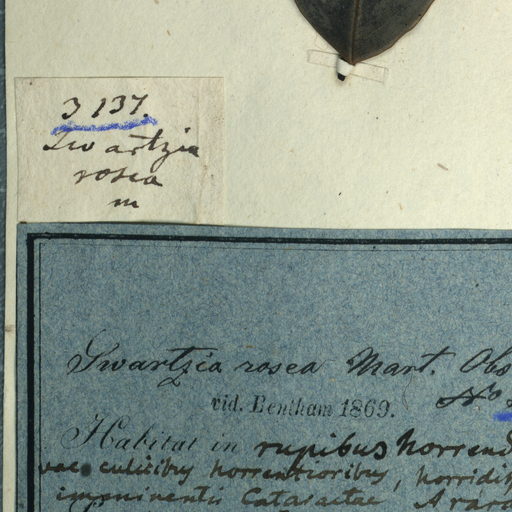 3137.
Swartzia
rosea
m
Swartzia rosea Mart. Obs
vid. Bentham 1869.
No
Habitat in rupibus horrend
vae culicibus horrentioribus, horridis
imminentis Cataractae Arara